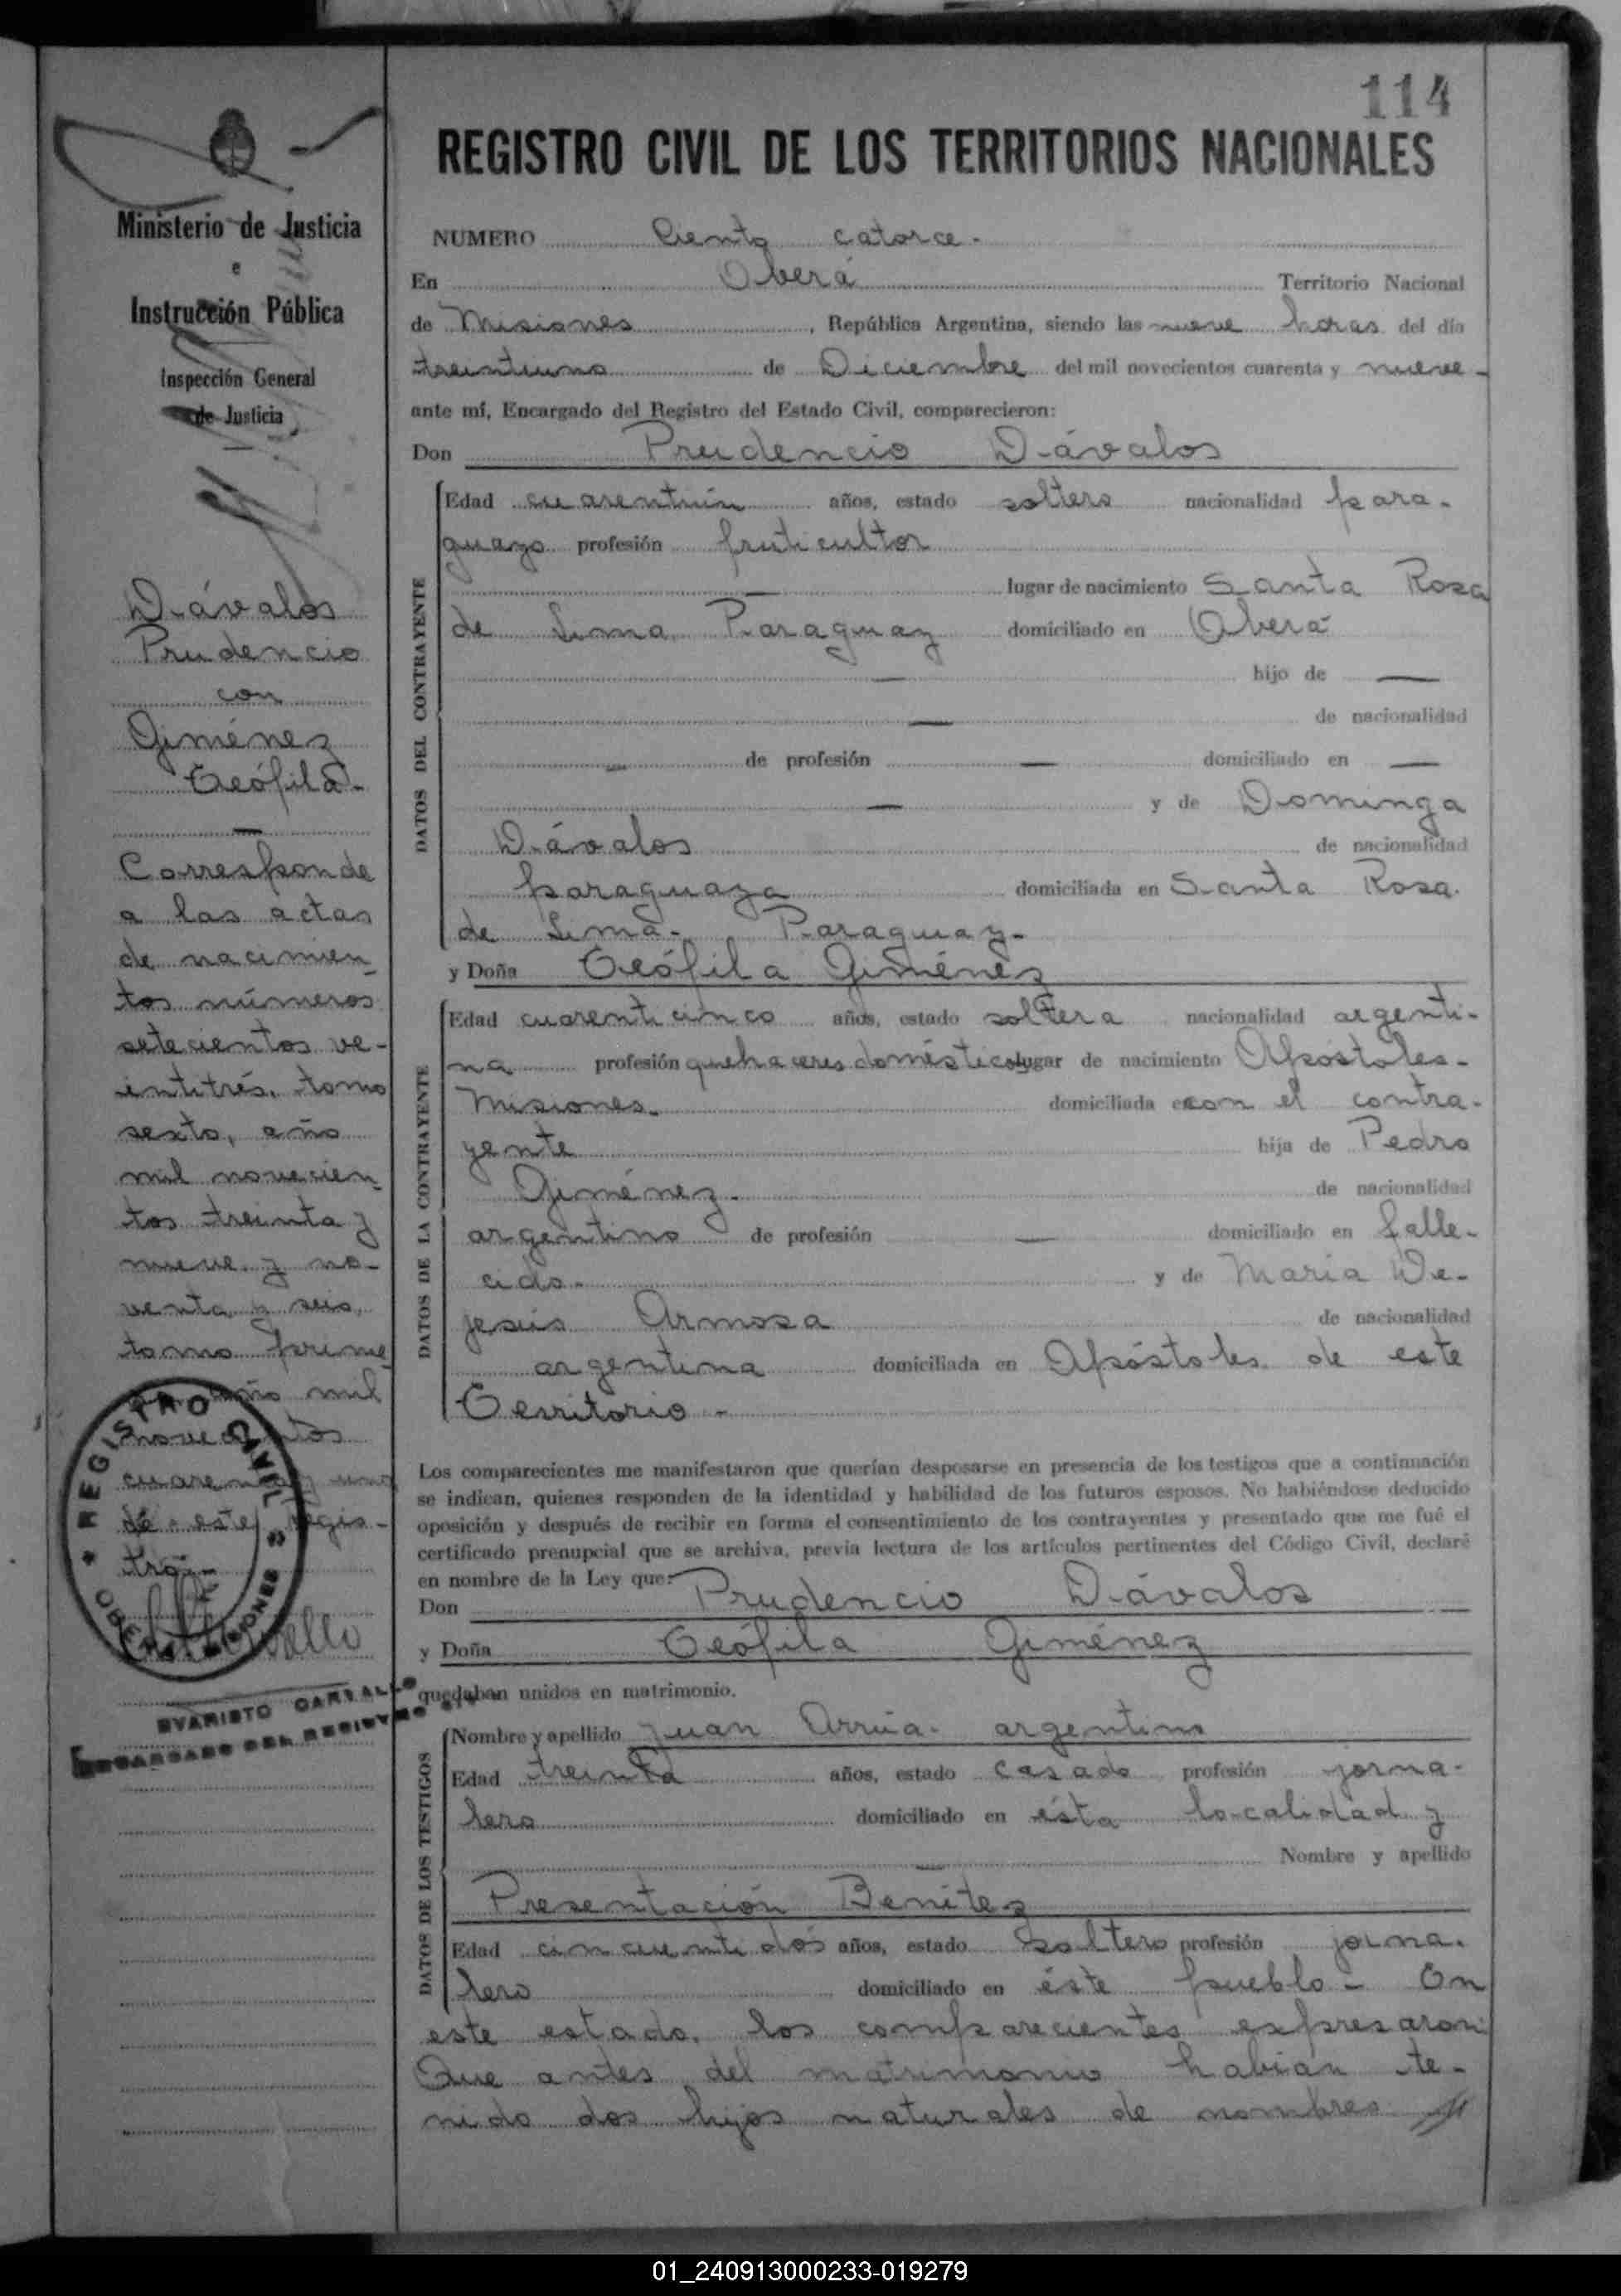 114
REGISTRO CIVIL DE LOS TERRITORIOS NACIONALES
Ministerio de Justicia
e
Instrucción Pública
Inspección General
de Justicia
Dávalos
Prudencio
con
Giménez
Teófila.-
Corresponde
a las actas
de nacimien-
tos números
setecientos ve-
intitrés, tomo
sexto, año
mil novecien-
tos treinta y
nueve y no-
venta y seis,
tomo prime
año mil
novecientos
cuarenta y uno
de este Regis-
tro.-
REGISTRO CIVIL
OBERA MISIONES
EVARISTO CARVALLO
ENCARGADO DEL REGISTRO CIVIL
NUMERO Ciento catorce.-
En Oberá Territorio Nacional
de Misiones, República Argentina, siendo las nueve horas del día
treintiuno de Diciembre del mil novecientos cuarenta y nueve-
ante mí, Encargado del Registro del Estado Civil, comparecieron:
Don Prudencio Dávalos
DATOS DEL CONTRAYENTE
Edad cuarentiún años, estado soltero nacionalidad para-
guayo profesión fruticultor
lugar de nacimiento Santa Rosa
de Lima Paraguay domiciliado en Oberá
hijo de —
— de nacionalidad
— de profesión — domiciliado en —
— y de Dominga
Dávalos de nacionalidad
paraguaya domiciliada en Santa Rosa
de Lima- Paraguay-
y Doña Teófila Giménez
DATOS DE LA CONTRAYENTE
Edad cuarenticinco años, estado soltera nacionalidad argenti-
na profesión quehaceres domésticos lugar de nacimiento Apóstoles-
Misiones. domiciliada en con el contra-
yente hija de Pedro
Giménez.- de nacionalidad
argentino de profesión — domiciliado en falle-
cido.- y de María De-
jesús Armosa de nacionalidad
argentina domiciliada en Apóstoles de este
Territorio.-
Los comparecientes me manifestaron que querían desposarse en presencia de los testigos que a continuación
se indican, quienes responden de la identidad y habilidad de los futuros esposos. No habiéndose deducido
oposición y después de recibir en forma el consentimiento de los contrayentes y presentado que me fué el
certificado prenupcial que se archiva, previa lectura de los artículos pertinentes del Código Civil, declaré
en nombre de la Ley que:
Don Prudencio Dávalos
y Doña Teófila Giménez
quedaban unidos en matrimonio.
DATOS DE LOS TESTIGOS
Nombre y apellido Juan Arrúa- argentino
Edad treinta años, estado casado profesión jorna-
lero domiciliado en ésta localidad y
— Nombre y apellido
Presentación Benítez
Edad cincuentidós años, estado soltero profesión jorna-
lero domiciliado en éste pueblo- En
este estado, los comparecientes expresaron:
Que antes del matrimonio habían te-
nido dos hijos naturales de nombres
01_240913000233-019279